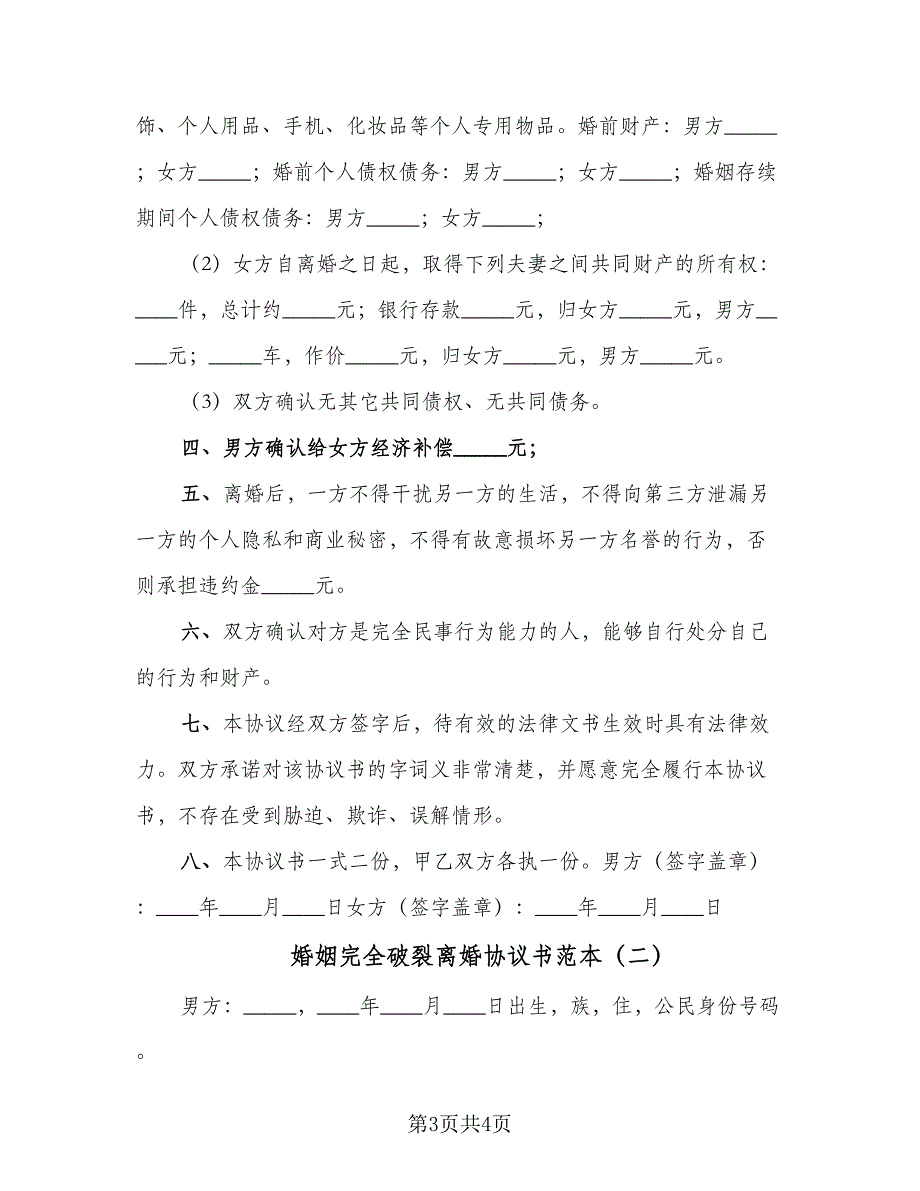 饰、个人用品、手机、化妆品等个人专用物品。婚前财产：男方_____
；女方_____；婚前个人债权债务：男方_____；女方_____；婚姻存续
期间个人债权债务：男方_____；女方_____；
（2）女方自离婚之日起，取得下列夫妻之间共同财产的所有权：
____件，总计约_____元；银行存款_____元，归女方_____元，男方__
___元；_____车，作价_____元，归女方_____元，男方_____元。
（3）双方确认无其它共同债权、无共同债务。
四、男方确认给女方经济补偿_____元；
五、离婚后，一方不得干扰另一方的生活，不得向第三方泄漏另
一方的个人隐私和商业秘密，不得有故意损坏另一方名誉的行为，否
则承担违约金_____元。
六、双方确认对方是完全民事行为能力的人，能够自行处分自己
的行为和财产。
七、本协议经双方签字后，待有效的法律文书生效时具有法律效
力。双方承诺对该协议书的字词义非常清楚，并愿意完全履行本协议
书，不存在受到胁迫、欺诈、误解情形。
八、本协议书一式二份，甲乙双方各执一份。男方（签字盖章）
：____年____月____日女方（签字盖章）：____年____月____日
婚姻完全破裂离婚协议书范本（二）
男方：_____，____年____月____日出生，族，住，公民身份号码
。
第3页共4页